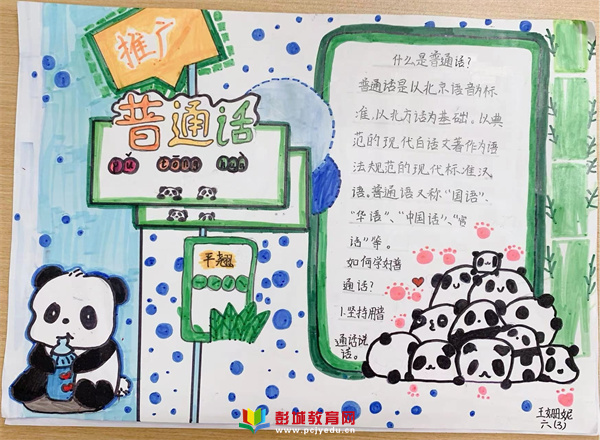 推广
普通话
pǔ tōng huà
平翘
什么是普通话？
普通话是以北京语音为标
准，以北方话为基础。以典
范的现代白话文著作为语
法规范的现代标准汉
语。普通语又称“国语”、
“华语”、“中国话”、“官
话”等。
如何学好普
通话？
1.坚持用普
通话说
话。
王姗妮
六(3)
彭城教育网
www.pcjyedu.cn